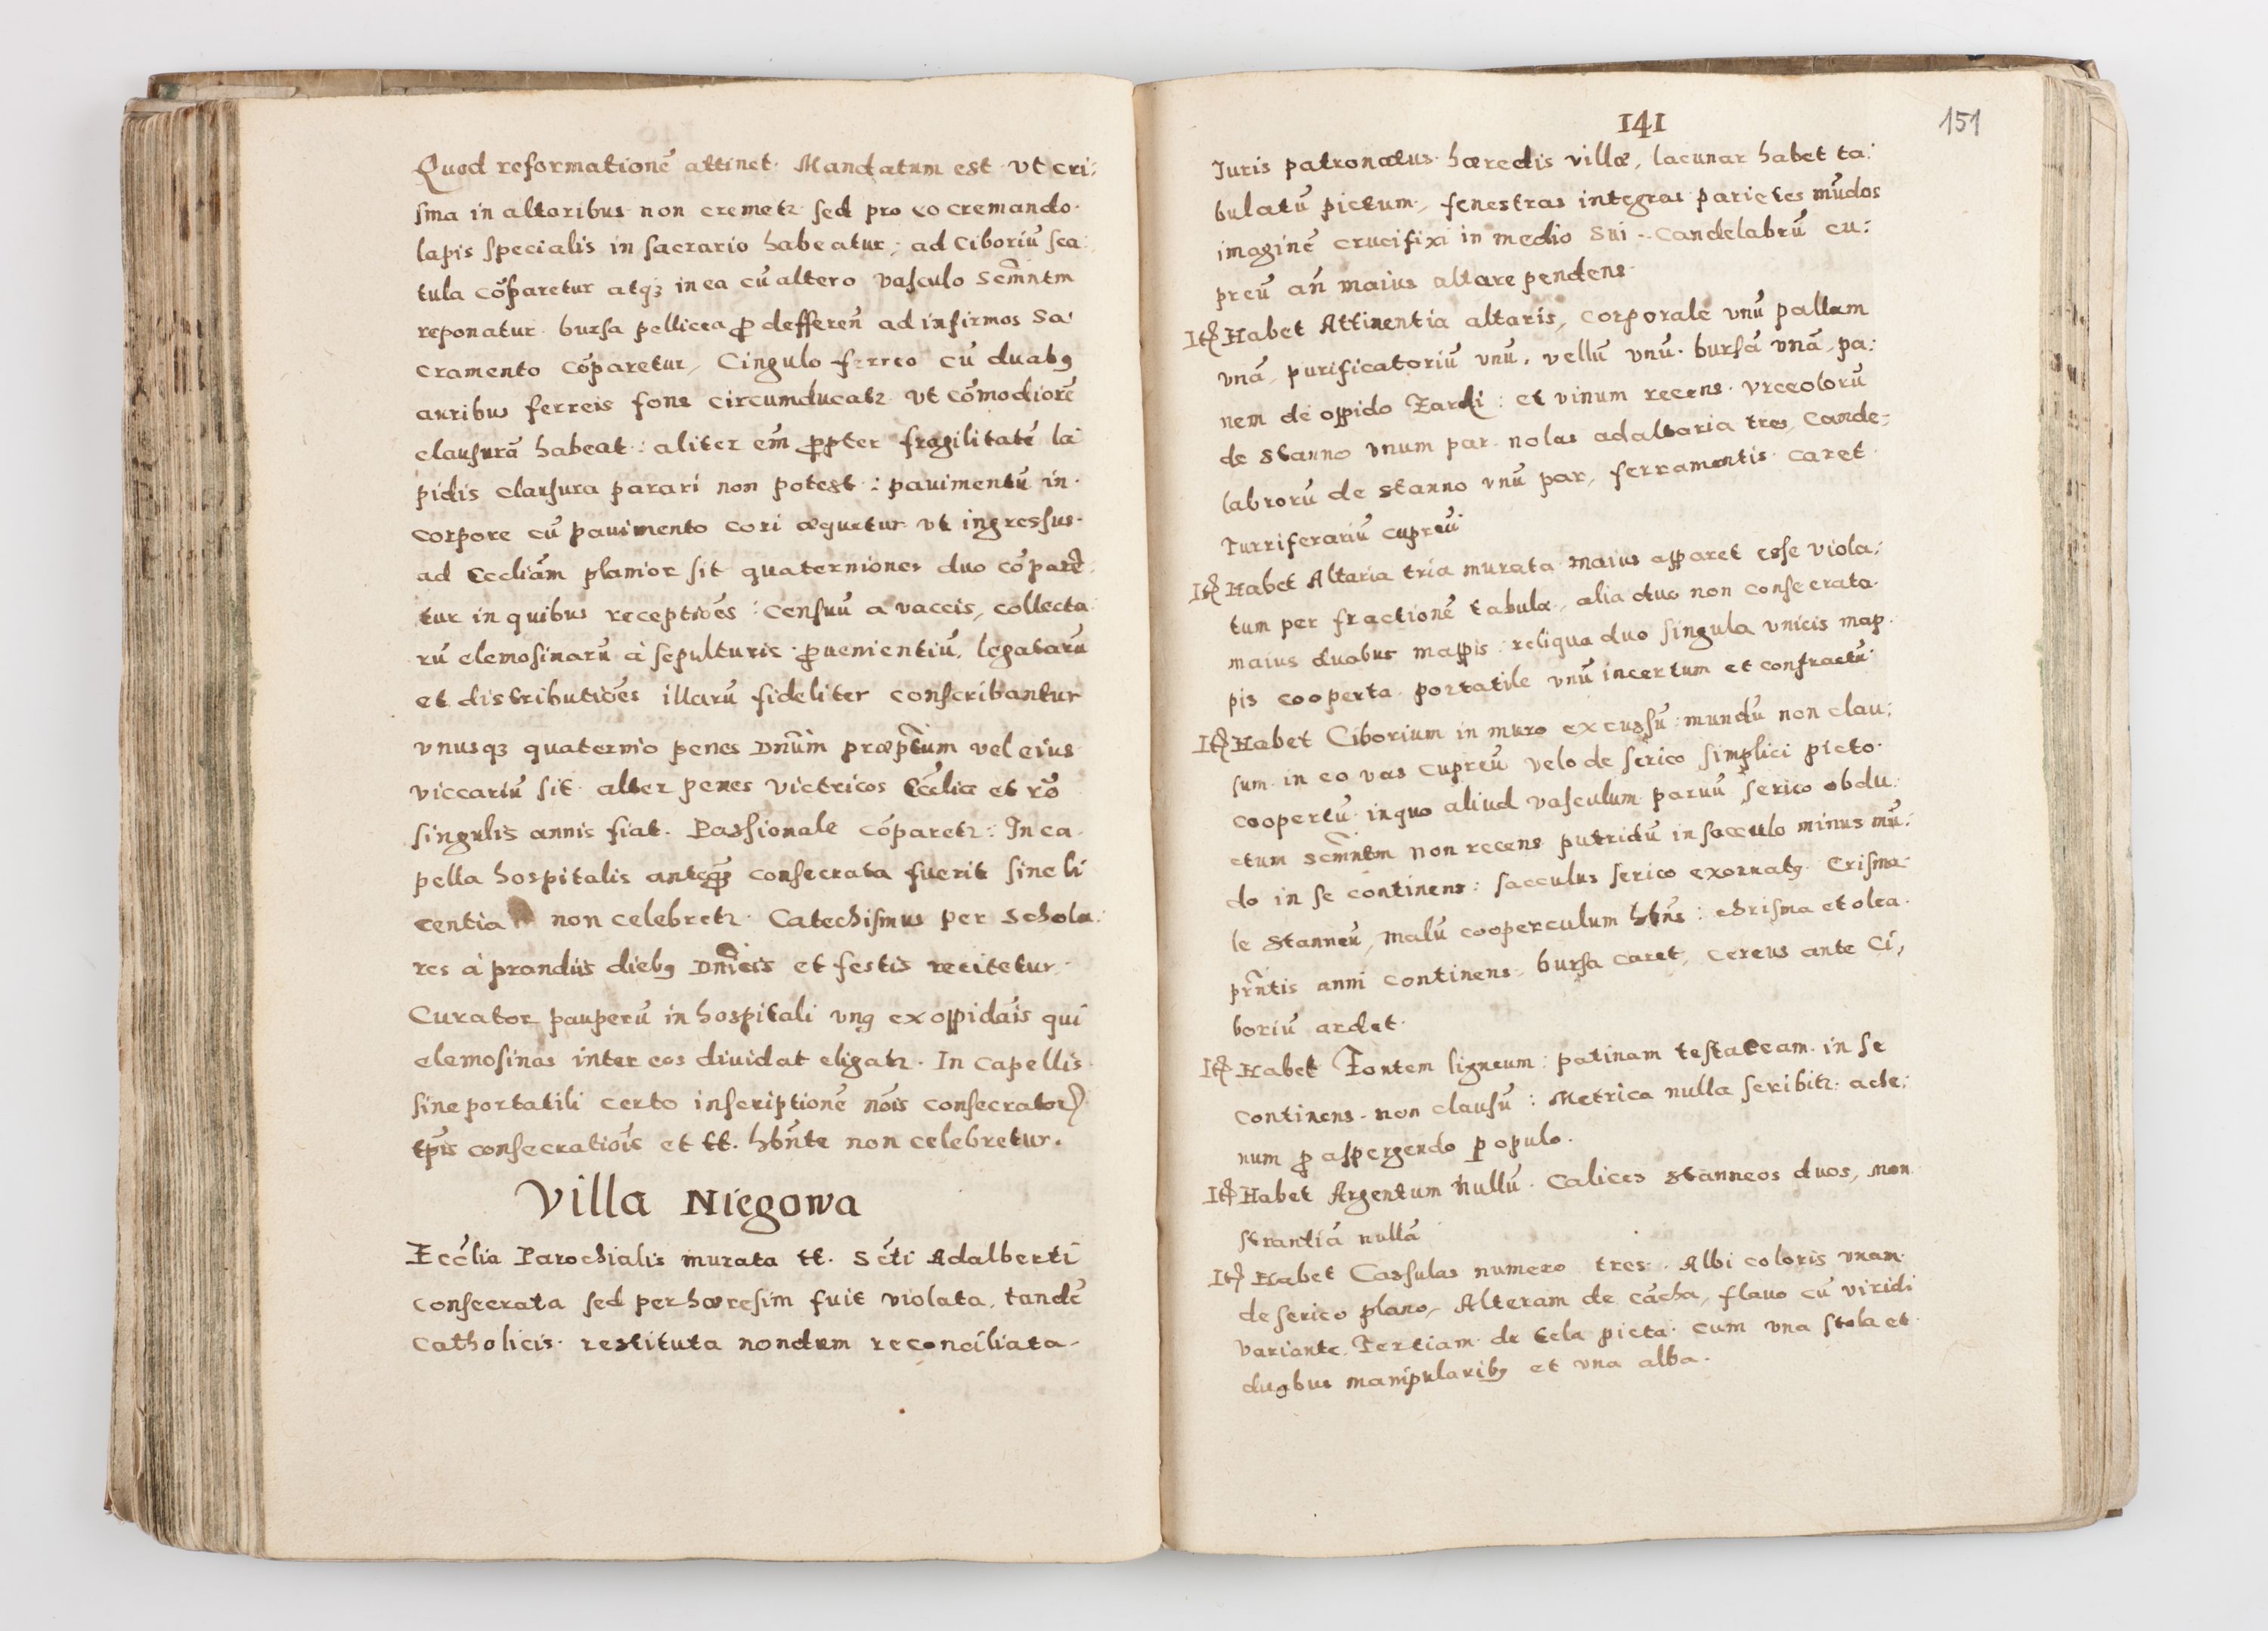 Quod reformationē attinet. Mandatum est vt cri:
sma in altaribus non cremetr sed pro eo cremando.
lapis specialis in sacrario habeatur, ad Ciboriū sca:
tula cōparetur atqȝ in ea cū altero vasculo Scm̄ntm
reponatur. bursa pellicea ꝓ defferen̄ ad infirmos Sa:
cramento cōparetur, Cingulo ferreo cū duabꝰ
auribus ferreis fons circumducatr vt cōmodiorē
clausurā habeat: aliter em̄ ꝓpter fragilitatē la
pidis clausura parari non potest: pauimentū in.
corpore cū pauimento cori æquetur vt ingressus.
ad Eccliām planior sit quaterniones duo cōparē:
tur in quibus receptiōēs: Censuū a vaccis, collecta:
rū elemosinarū à sepulturis ꝓuenientiū, legatarū
et distributiōēs illarū fideliter conscribantur
vnusqȝ quaternio penes Dnūm præptūm vel eius
viccariū sit alter penes victricos Ecclīæ et rō
singulis annis fiat. Passionale cōparetr: In ca.
pella hospitalis anteqȝ consecrata fuerit sine li
centia non celebretr. Catechismus per Schola:
res à prandiis diebꝰ Dnīcis et festis recitetur.
Curator pauperū in hospitali vnꝰ ex oppidāis qui
elemosinas inter eos diuidat eligatr. In capellis.
sine portatili certo inscriptionē nōis consecratorꝭ
tp̄is consecratiōis et tt. hbn̄te non celebretur.
Villa Niegowa
Eccl̄ia Parochialis murata tt. Scti Adalberti
consecrata sed per hæresim fuit violata, tandē
Catholicis restituta nondum reconciliata.
141
151
Juris patronatus hæredis villæ, lacunar habet ta:
bulatū pictum, fenestras integras parietes mūdos
imaginē crucifixi in medio Sui. Candelabrū cu:
preū an̄ maius altare pendens.
Itꝭ Habet Attinentia altaris, corporale vnū pallam
vnā, purificatoriū vnū, vellū vnū. bursā vnā, pa:
nem de oppido Żarki: et vinum recens. Vrceolorū
de Stanno vnum par. nolas ad altaria tres, Cande:
labrorū de stanno vnū par, ferramentis caret.
Turriferariū cupreū
Itꝭ Habet Altaria tria murata maius apparet esse viola:
tum per fractionē tabulæ, alia duo non consecrata.
maius duabus mappis: reliqua duo singula vnicis map.
pis cooperta. portatile vnū incertum et confractū.
Itꝭ Habet Ciborium in muro excussū: mundū non clau:
sum. in eo vas cupreū velo de serico simplici picto.
coopertū. in quo aliud vasculum paruū serico obdu:
ctum Scm̄ntm non recens putridū in sacculo minus mū:
do in se continens: sacculus serico exornatꝰ. Crisma:
le Stanneū, malū cooperculum hbn̄s: chrisma et olea.
prn̄tis anni continens. bursa caret, cereus ante Ci,
boriū ardet.
Itꝭ Habet Fontem ligneum: patinam testaceam in se
continens. non clausū: Metrica nulla scribitr. ache:
num ꝓ aspergendo populo.
Itꝭ Habet Argentum nullū. Calices stanneos duos, mon
strantiā nullā
Itꝭ Habet Cassulas numero tres. Albi coloris vnam.
de serico plano, Alteram de cācha, flauo cū viridi
variante. Tertiam de tela picta. cum vna stola et
duabus manipularibꝰ et vna alba.